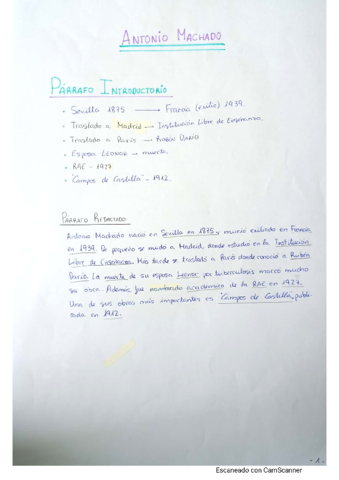 ANTONIO MACHADO
PÁRRAFO INTRODUCTORIO
- Sevilla 1875 → Francia (exilio) 1939.
- Traslado a Madrid → Institución Libre de Enseñanza.
- Traslado a París → RUBÉN DARÍO
- Esposa LEONOR → muerte.
- RAE - 1927
- "Campos de Castilla" - 1912.
PÁRRAFO REDACTADO
Antonio Machado nació en Sevilla en 1875 y murió exiliado en Francia
en 1939. De pequeño se mudó a Madrid, donde estudió en la Institución
Libre de Enseñanza. Más tarde se trasladó a París donde conoció a Rubén
Darío. La muerte de su esposa Leonor por tuberculosis marcó mucho
su obra. Además fue nombrado académico de la RAE en 1927.
Una de sus obras más importantes es "Campos de Castilla", publi-
cada en 1912.
- 1 -
Escaneado con CamScanner